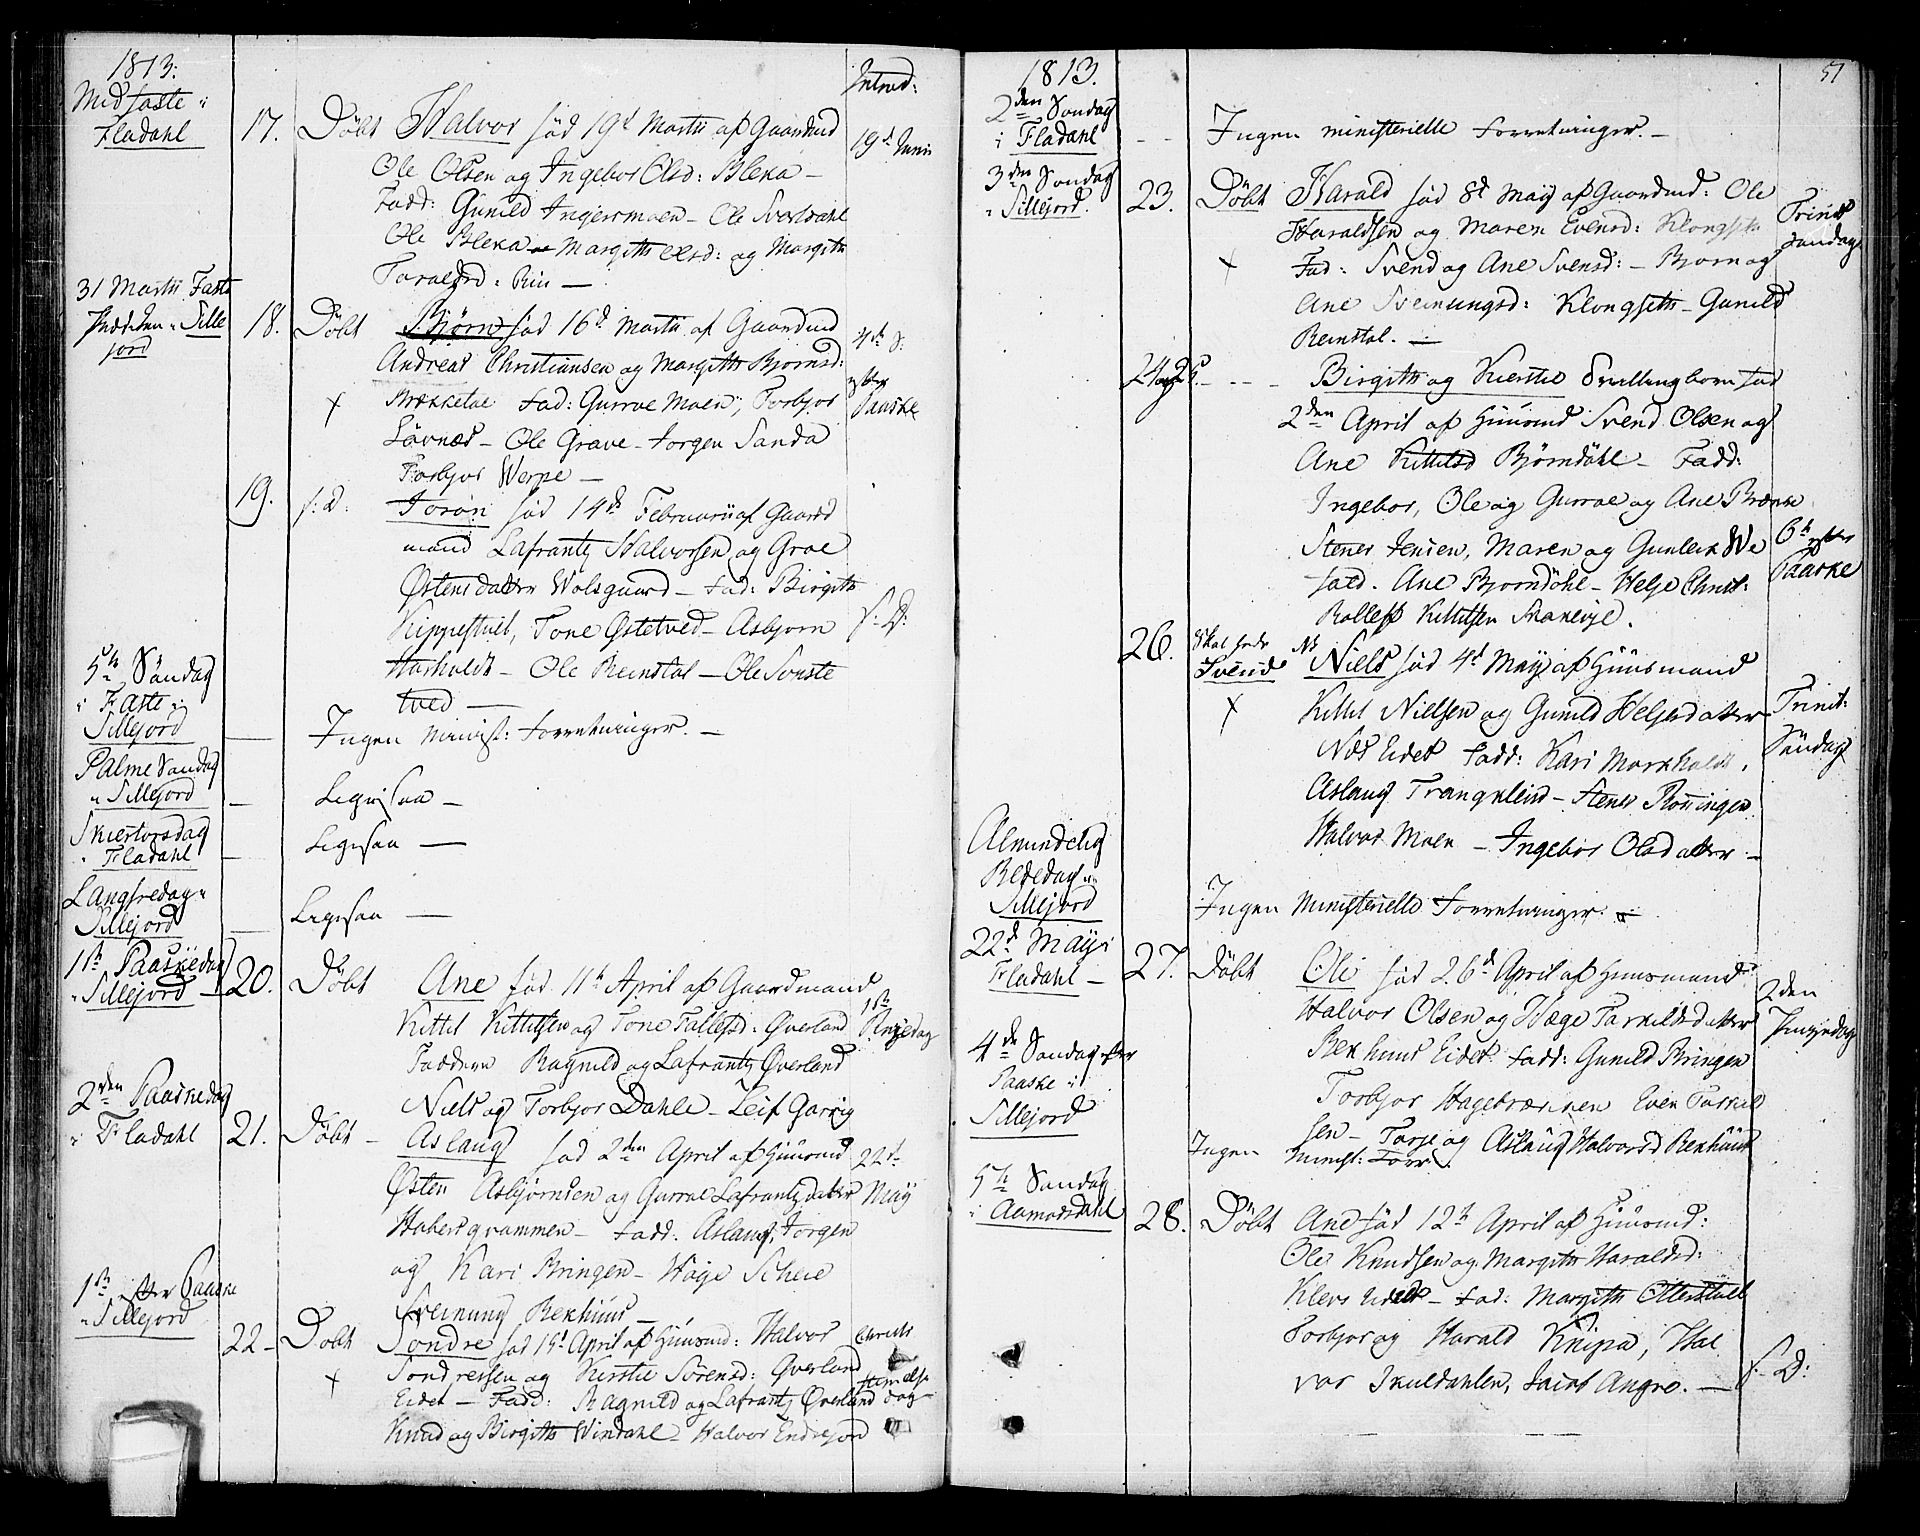 1813.
Midfaste i
Fladahl
Introd:
17. Döbt Halvor föd 19d Martii af Gaardmd
19d Junii
Ole Olsen og Ingebor Olsd: Bleka –
Fadd: Gunild Ingersmoen – Ole Svartdahl
Ole Bleka – Margith Olsd: og Margith
Taraldsd: –
31 Martii Faste
Prædiken i Sille
jord
18. Döbt Björn föd 16d Martii af Gaardmd
4de S.
Andreas Christiansen og Margith Bjornsd:
efter
Brekketoe Fad: Gurroe Moen, Torbjor
Paaske
Lövnæs – Ole Grave – Jorgen Sanda
Torbjor Werpe –
19. f: D: Joron föd 14de Februarii af Gaard
mand Lafrantz Halvorsen og Groe
Østensdatter Wolsgaard – Fad: Birgith
Kippestuel, Tone Østetved – Asbjorn
f: D:
Harholdt – Ole Reinstal – Ole Synste
tved –
5te Söndag
i Faste i
Sillejord
Ingen Minist: Forretninger. –
Palme Sandag
i Sillejord – Ligesaa –
Skiertorsdag
i Fladahl – Ligesaa –
Langfredag i
Sillejord – Ligesaa –
1te Paaskedag
i Sillejord – 20. Döbt Ane föd 11te April af Gaardmand
Kittil Kittilsen og Tone Tallefsd: Øverland
1te Pinsedag
Faddere Ragnild og Lafrantz Øverland
Niels og Torbjor Dahle – Leif Garvig
2den Paaskedag
i Fladahl 21. Döbt – Aslaug föd 2den April af Huusmd
22de
Østen Asbjørnsen og Gurroe Lafrantzdatter
May
Haberqvammen – Fadd: Aslaug, Jorgen
og Kari Bringen – Hage Scheie
Sveinung Rekhuus –
1te efter Paaske
i Sillejord
22 – Döbt Sondre föd 19d April af Huusmd: Halvor
Christi
Sondresen og Kirstie Sörensd: Øverland
Himelfs
Eidet – Fadd: Ragnild og Lafrantz Øverland
dag –
Knud og Birgith Windahl – Halvor Endrejord
51
1813.
2den Sondag
i Fladahl – – Ingen ministerielle Forretninger. –
3die Sondag
i Sillejord.
23. Döbt Harald föd 8d May af Gaardmd: Ole
Trinit
Haraldsen og Maren Evensd: Klongseth
Sondag
Fad: Svend og Ane Svensd: – Bjorn og
Ane Sveinungsd: Klongseth – Gunild
Reinstal. –
24 og 25. – – – Birgith og Kierstie Tvillingborn föd
2den April af Huusmd Svend Olsen og
Ane Kittilsd Björndahl – Fadd:
Ingebor, Ole og Gurroe og Ane Brænne
Stener Jensen, Maren og Gunleik We
6te efter
Paaske
sæd. Ane Bjorndahl – Helje Christ:
Rollefs Kittilsen Skareije.
26. Skal hede
Svend
Ns Niels föd 4d May af Huusmand
Kittil Nielsen og Gunild Heljesdatter
Trinit:
Næs Eidet Fadd: Kari Markholdt.
Söndag
Aslaug Trangkleiv – Stener
Halvor Moen – Ingebor Olsdatter –
Almindelig
Bededag i
Sillejord
Ingen Ministerielle Forretninger. –
22d May i
Fladahl –
27. Döbt Ole föd 26d April af Huusmand
2den
Halvor Olsen og Hæge Tarkildsdatter
Pinsedag
Rekhuus Eidet Fadd: Gunild Bringen
Torbjor Hagebrænnen Even Tarkild
sen – Tarje og Aslaug Halvorsd Rekhuus
4de Sondag efter
Paaske i
Sillejord
Ingen Minist: Forr.
5te Sondag
i Aamodsdahl
28. Döbt Ane föd 12te April af Huusmd:
Ole Knudsen og Margith Haraldsd:
Klevs Eidet – Fad: Margith Otterstuel
Torbjor og Harald Knipa, Hal
vor Skuldahlen, Angro. –
f: D: